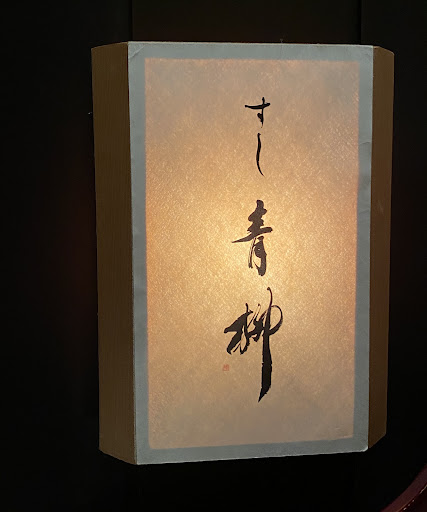 すし 青柳